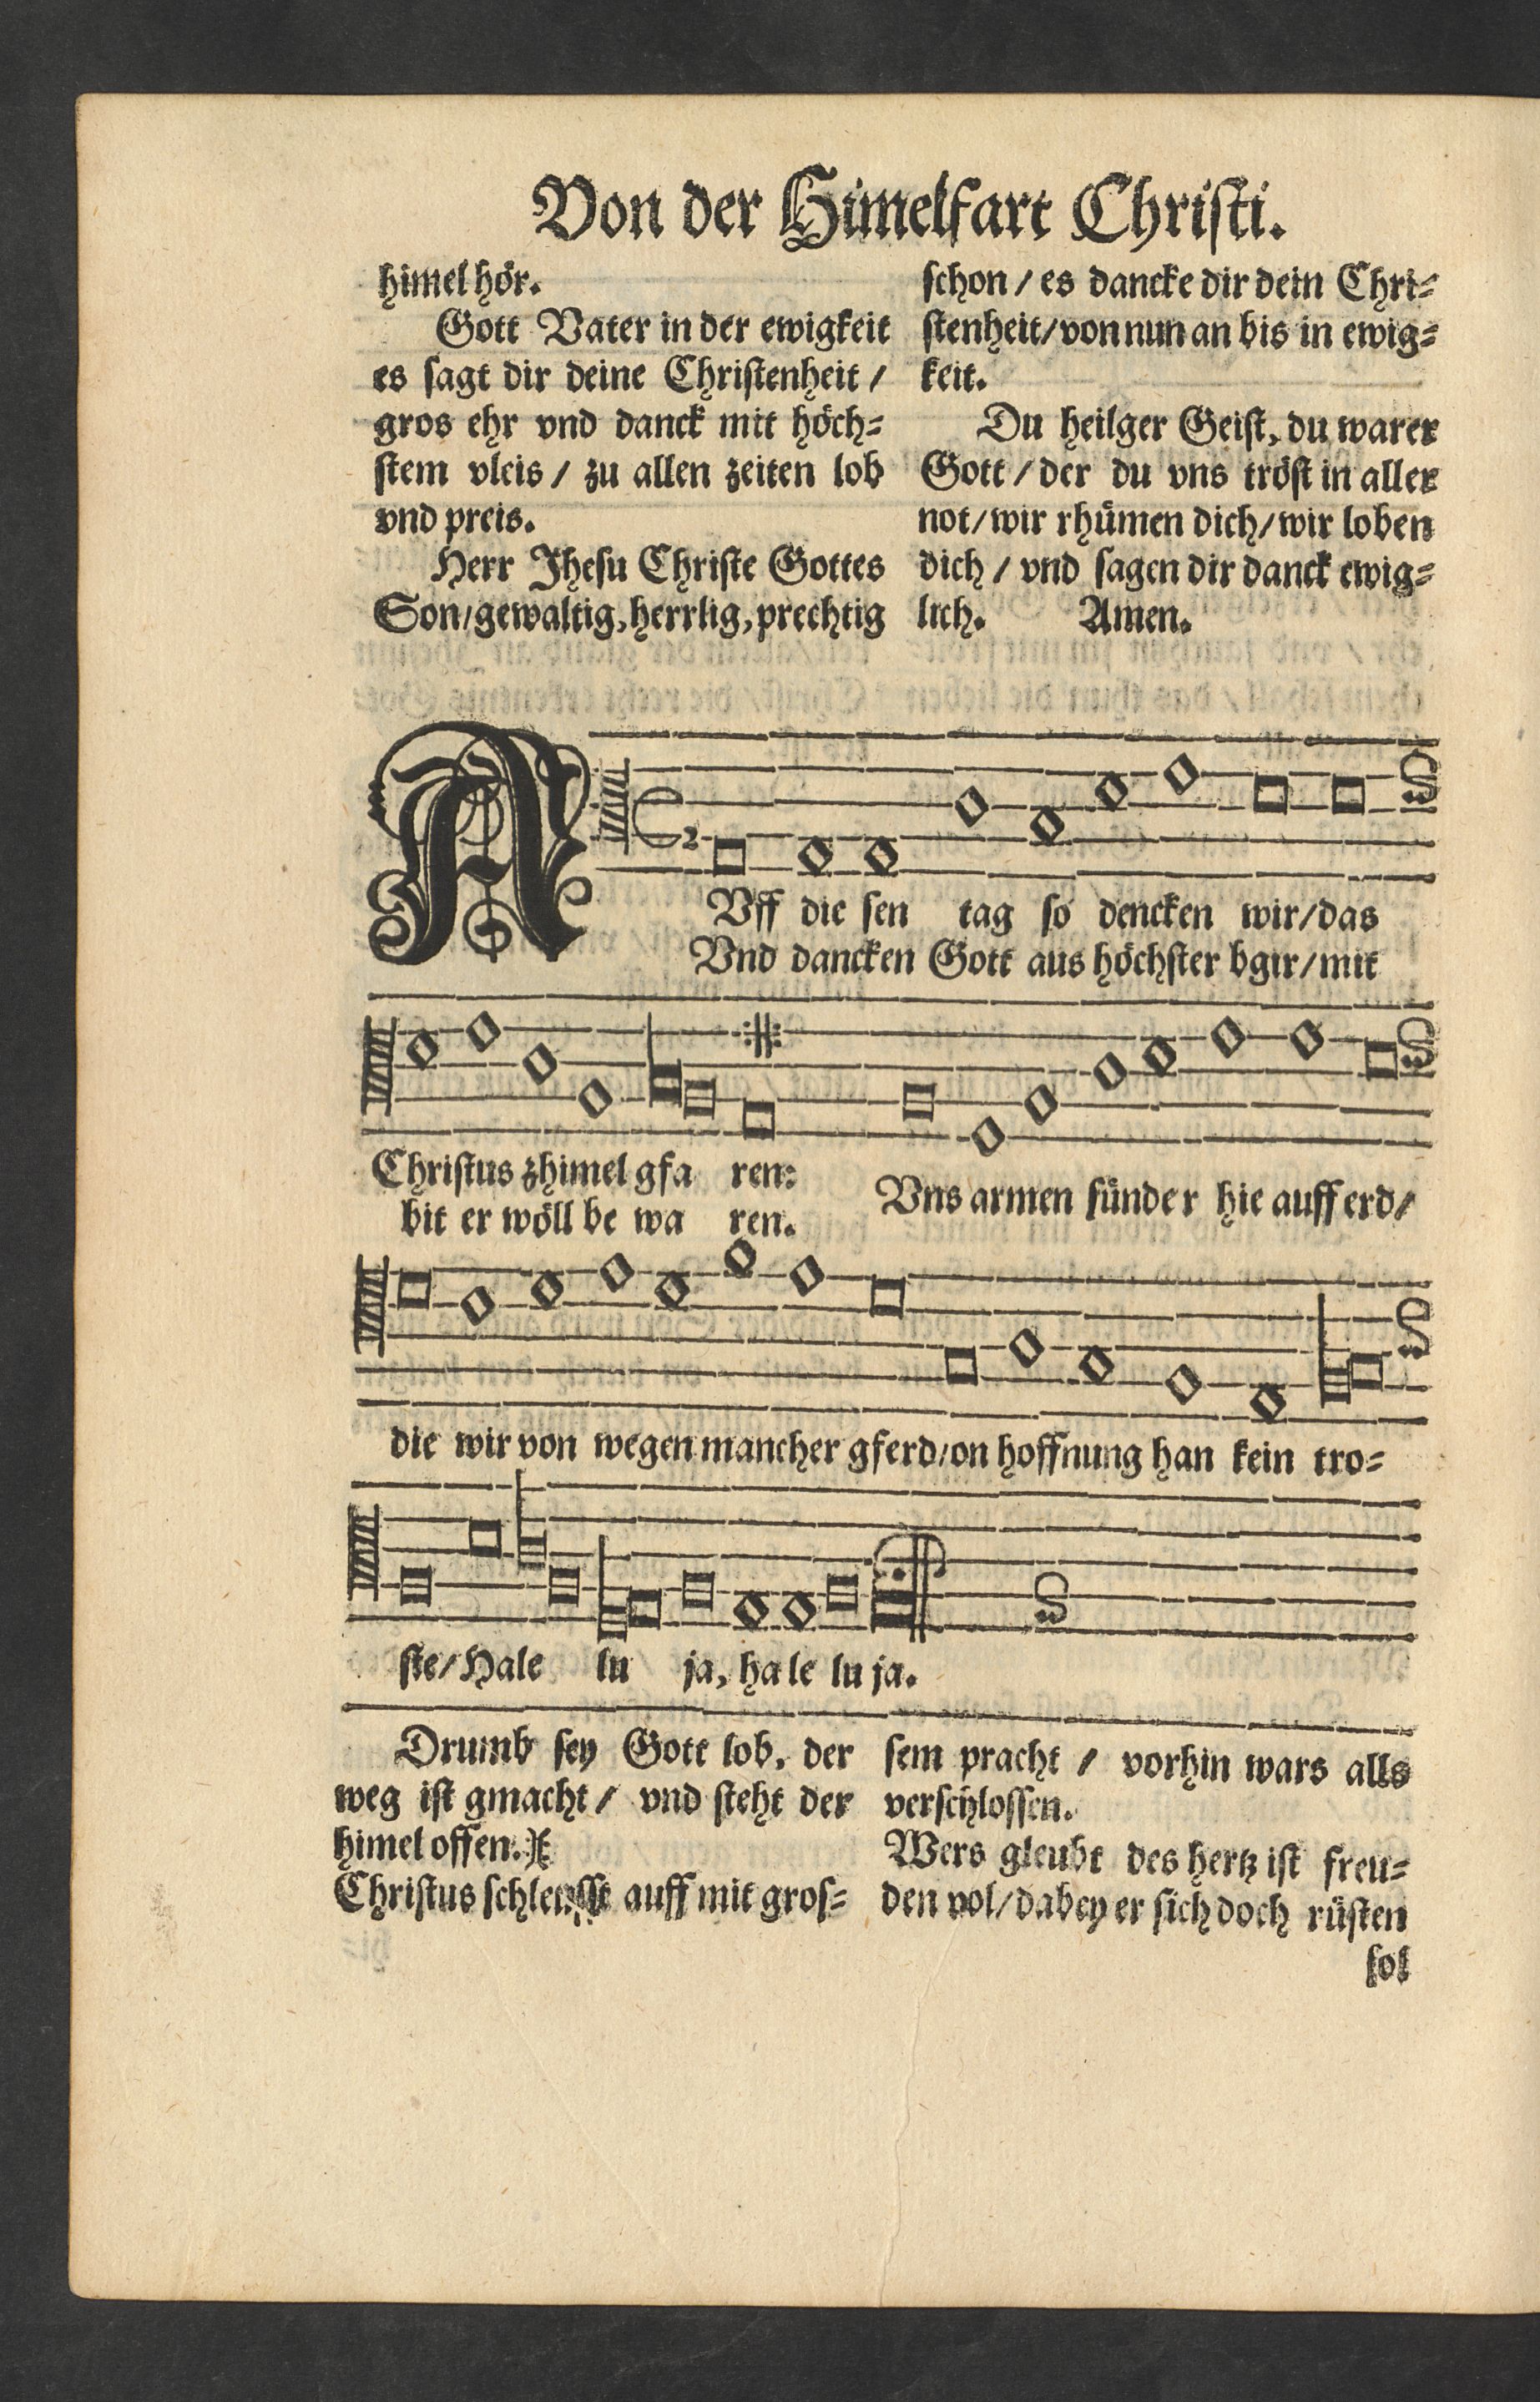 Von der Himelfart Christi.
himel hör.
Gott Vater in der ewigkeit
es sagt dir deine Christenheit /
gros ehr vnd danck mit höch-
stem vleis / zu allen zeiten lob
vnd preis.
Herr Jhesu Christe Gottes
Son/gewaltig, herrlig, prechtig
schon / es dancke dir dein Chri-
stenheit/von nun an bis in ewig-
keit.
Du heilger Geist, du warer
Gott / der du vns tröst in aller
not/wir rhümen dich/wir loben
dich / vnd sagen dir danck ewig-
lich. Amen.
AVff die sen tag so dencken wir/das
Vnd dancken Gott aus höchster bgir/mit
Christus zhimel gfa ren:
bit er wöll be wa ren.
Vns armen sünder hie auff erd/
die wir von wegen mancher gferd/on hoffnung han kein tro-
ste/Hale lu ja, ha le lu ja.
Drumb sey Gott lob, der
weg ist gmacht / vnd steht der
himel offen.
Christus schleusst auff mit gros-
sem pracht / vorhin wars alls
verschlossen.
Wers gleubt des hertz ist freu-
den vol/dabey er sich doch rüsten
sol